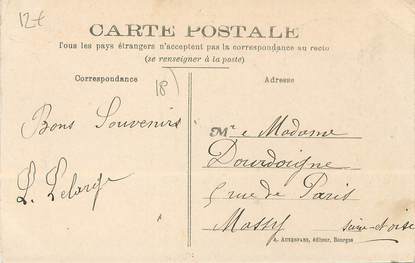 12€
CARTE POSTALE
Tous les pays étrangers n'acceptent pas la correspondance au recto
(se renseigner à la poste)
Correspondance
Adresse
18)
Bons Souvenirs
L. Lelarge
Mr e Madame
Dourdoigne
5 rue de Paris
Massy Seine-et-oise
éditeur, Bourges